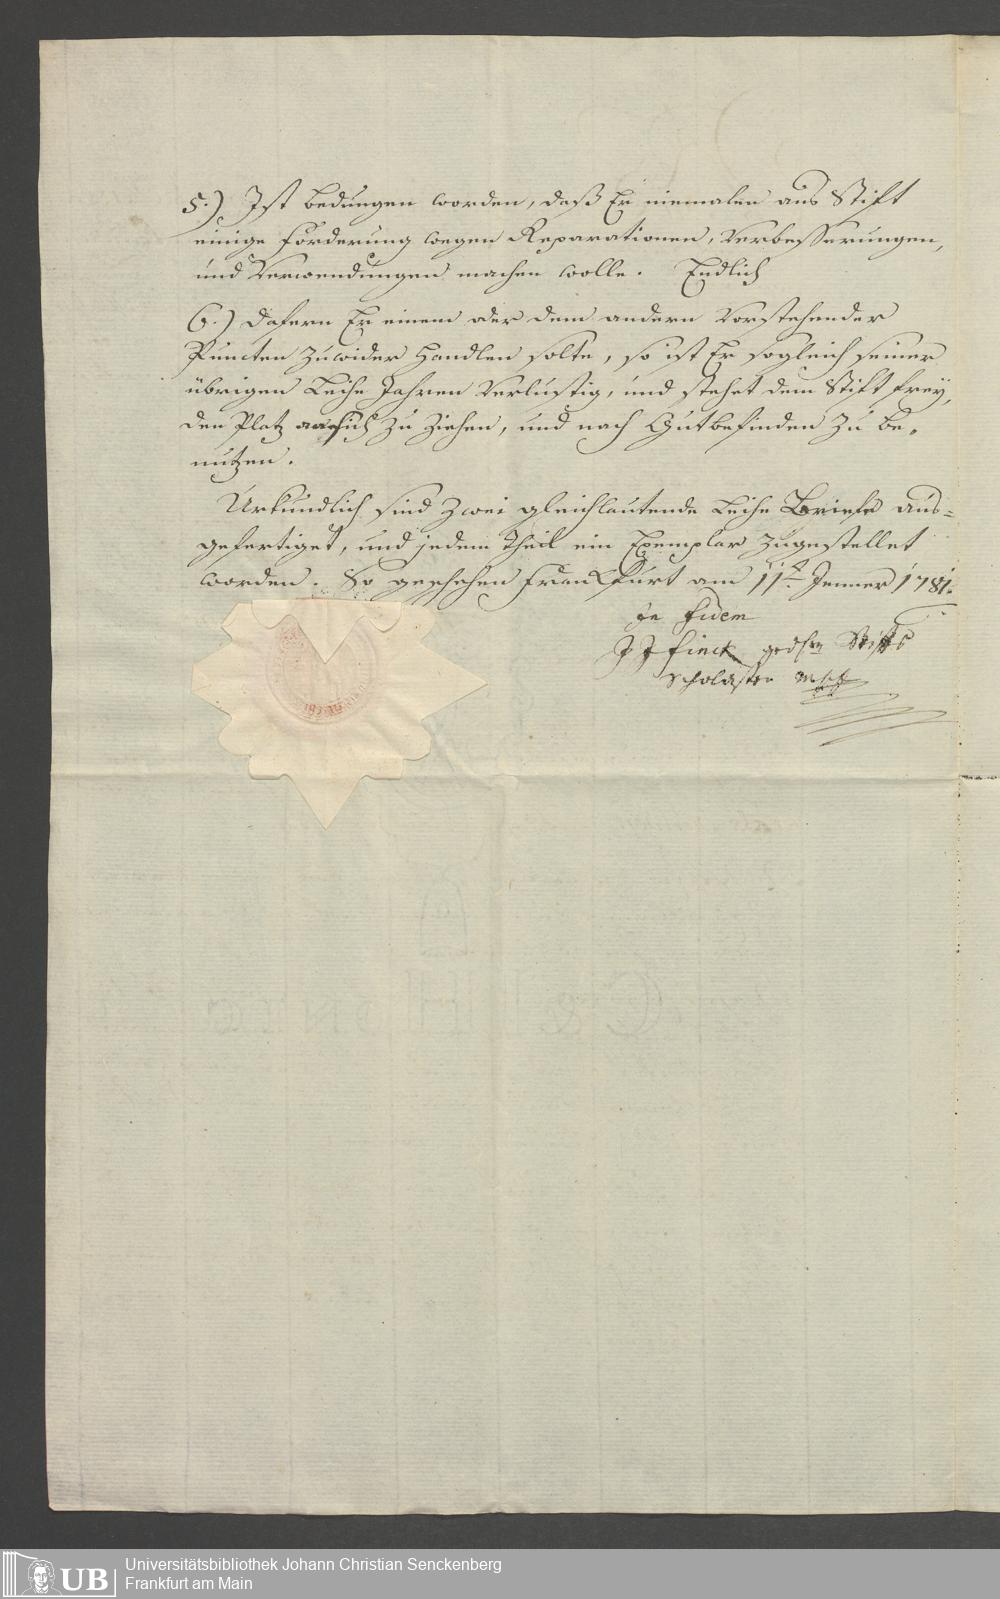 5.) Ist bedungen worden, daß Er niemalen ans Stift
einige Forderung wegen Reparationen, Verbesserungen,
und Verwendungen machen wolle. Endlich
6.) Dafern Er einem oder dem andern Vorstehender
Puncten zuwider handlen solte, so ist Er sogleich seiner
übrigen Leihe Jahren verlustig, und stehet dem Stift frey,
den Platz an sich zu ziehen, und nach Gutbefinden zu be„
nutzen.
Urkundlich sind zwei gleichlautende Leihe Briefe aus=
gefertiget, und jedem Theil ein Exemplar zugestellet
worden. So geschehen Franckfurt am 11t. Jenner 1781.
in fidem
J J Finck Stifts
Scholaster
UB
Universitätsbibliothek Johann Christian Senckenberg
Frankfurt am Main